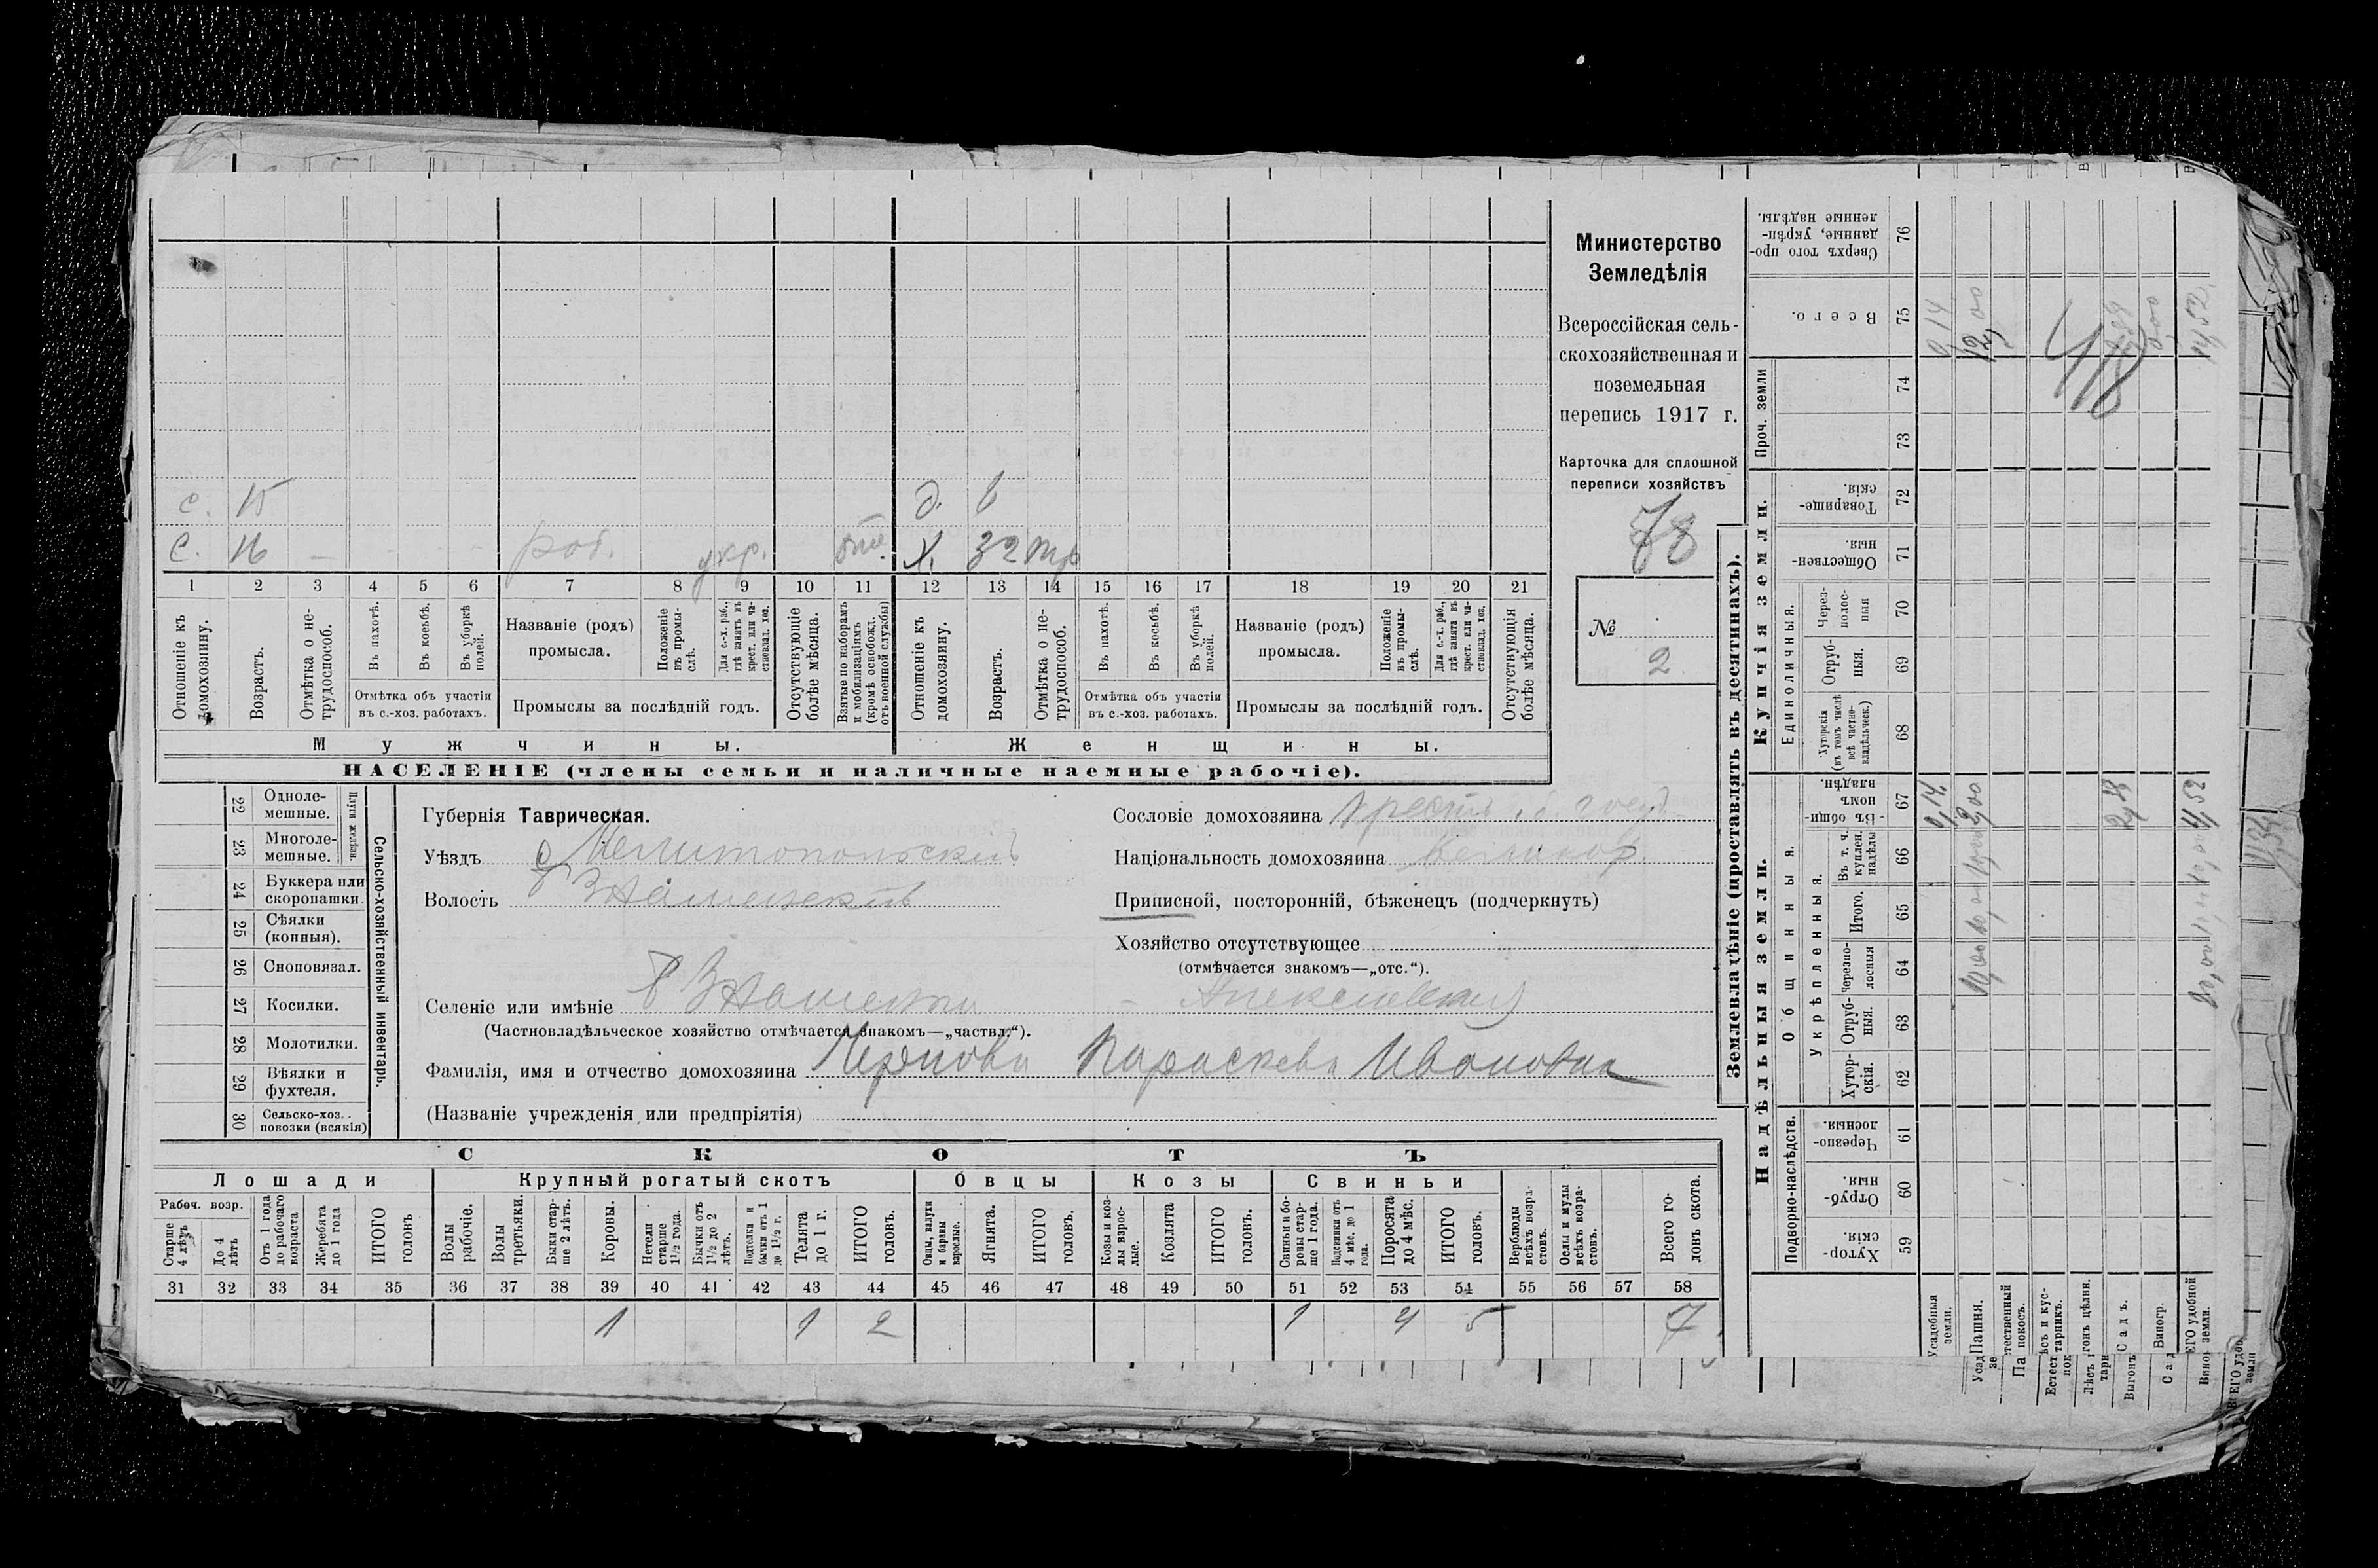 Министерство
Земледѣлія
Всероссійская сель-
скохозяйственная и
поземельная
перепись 1917 г.
Карточка для сплошной
переписи хозяйствъ
78
№
2
с. 15
д. 6
С. 16 — раб. укр.
Х. 32
1 2 3 4 5 6 7 8 9 10 11 12 13 14 15 16 17 18 19 20 21
Отношеніе къ домохозяину.
Возрастъ.
Отмѣтка о не-трудоспособ.
Въ пахотѣ.
Въ косьбѣ.
Въ уборкѣ полей.
Отмѣтка объ участіи
въ с.-хоз. работахъ.
Названіе (родъ)
промысла.
Положеніе въ промы-слѣ.
Для с.-х. раб., гдѣ занятъ въ крест. или ча-стновлад. хоз.
Промыслы за послѣдній годъ.
Отсутствующіе болѣе мѣсяца.
Взятые по наборамъ и мобилизаціямъ (кромѣ освобожд. отъ военной службы)
Отношеніе къ домохозяину.
Возрастъ.
Отмѣтка о не-трудоспособ.
Въ пахотѣ.
Въ косьбѣ.
Въ уборкѣ полей.
Отмѣтка объ участіи
въ с.-хоз. работахъ.
Названіе (родъ)
промысла.
Положеніе въ промы-слѣ.
Для с.-х. раб., гдѣ занята въ крест. или ча-стновлад. хоз.
Промыслы за послѣдній годъ.
Отсутствующія болѣе мѣсяца.
Мужчины. Женщины.
НАСЕЛЕНІЕ (члены семьи и наличные наемные рабочіе).
Сельско-хозяйственный инвентарь.
Плуги желѣзн.
22 Одноле-мешные.
23 Многоле-мешные.
24 Буккера или скоропашки.
25 Сѣялки (конныя).
26 Сноповязал.
27 Косилки.
28 Молотилки.
29 Вѣялки и фухтеля.
30 Сельско-хоз. повозки (всякія)
Губернія Таврическая.
Уѣздъ Мелитопольскій
Волость Знаменская
Селеніе или имѣніе Знаменка Алексеевка
(Частновладѣльческое хозяйство отмѣчается знакомъ—„частвл.“).
Фамилія, имя и отчество домохозяина Параскева Ивановна
(Названіе учрежденія или предпріятія)
Сословіе домохозяина крест. б. госуд.
Національность домохозяина Великор.
Приписной, посторонній, бѣженецъ (подчеркнуть)
Хозяйство отсутствующее
(отмѣчается знакомъ—„отс.“).
СКОТЪ
Лошади Крупный рогатый скотъ Овцы Козы Свиньи
Рабоч. возр.
Старше 4 лѣтъ
До 4 лѣтъ
Отъ 1 года до рабочаго возраста
Жеребята до 1 года
ИТОГО головъ
Волы рабочіе.
Волы третьяки.
Быки стар-ше 2 лѣтъ.
Коровы.
Нетели старше 1½ года.
Бычки отъ 1½ до 2 лѣтъ.
Подтелки и бычки отъ 1 до 1½ г.
Телята до 1 г.
ИТОГО головъ.
Овцы, валухи и бараны взрослые.
Ягнята.
ИТОГО головъ.
Козы и коз-лы взрос-лые.
Козлята
ИТОГО головъ.
Свиньи и бо-ровы стар-ше 1 года.
Подсвинки отъ 4 мѣс. до 1 года.
Поросята до 4 мѣс.
ИТОГО головъ.
Верблюды всѣхъ возра-стовъ.
Ослы и мулы всѣхъ возра-стовъ.
Всего го-ловъ скота.
31 32 33 34 35 36 37 38 39 40 41 42 43 44 45 46 47 48 49 50 51 52 53 54 55 56 57 58
1 1 2 1 4 5 7
Землевладѣніе (проставлять въ десятинахъ).
Надѣльныя земли.
Подворно-наслѣдств.
Хутор-скія. 59
Отруб-ныя. 60
Черезпо-лосныя. 61
Общинныя.
Укрѣпленныя.
Хутор-скія. 62
Отруб-ныя. 63
Черезпо-лосныя 64
Итого. 65
Въ т. ч. куплен. надѣлы 66
Въ общи-номъ владѣн. 67
Купчія земли.
Единоличныя.
Хуторскія (въ томъ числѣ всѣ частно-владѣльческ.) 68
Отруб-ныя. 69
Через-полос-ныя 70
Обществен-ныя. 71
Товарище-скія. 72
Проч. земли
73
74
Всего. 75
Сверхъ того про-данные, укрѣп-ленные надѣлы. 76
Усадебныя земли.
Пашня.
Садъ.
Виногр.
0,14
12,00
0,14
2,00
4,52